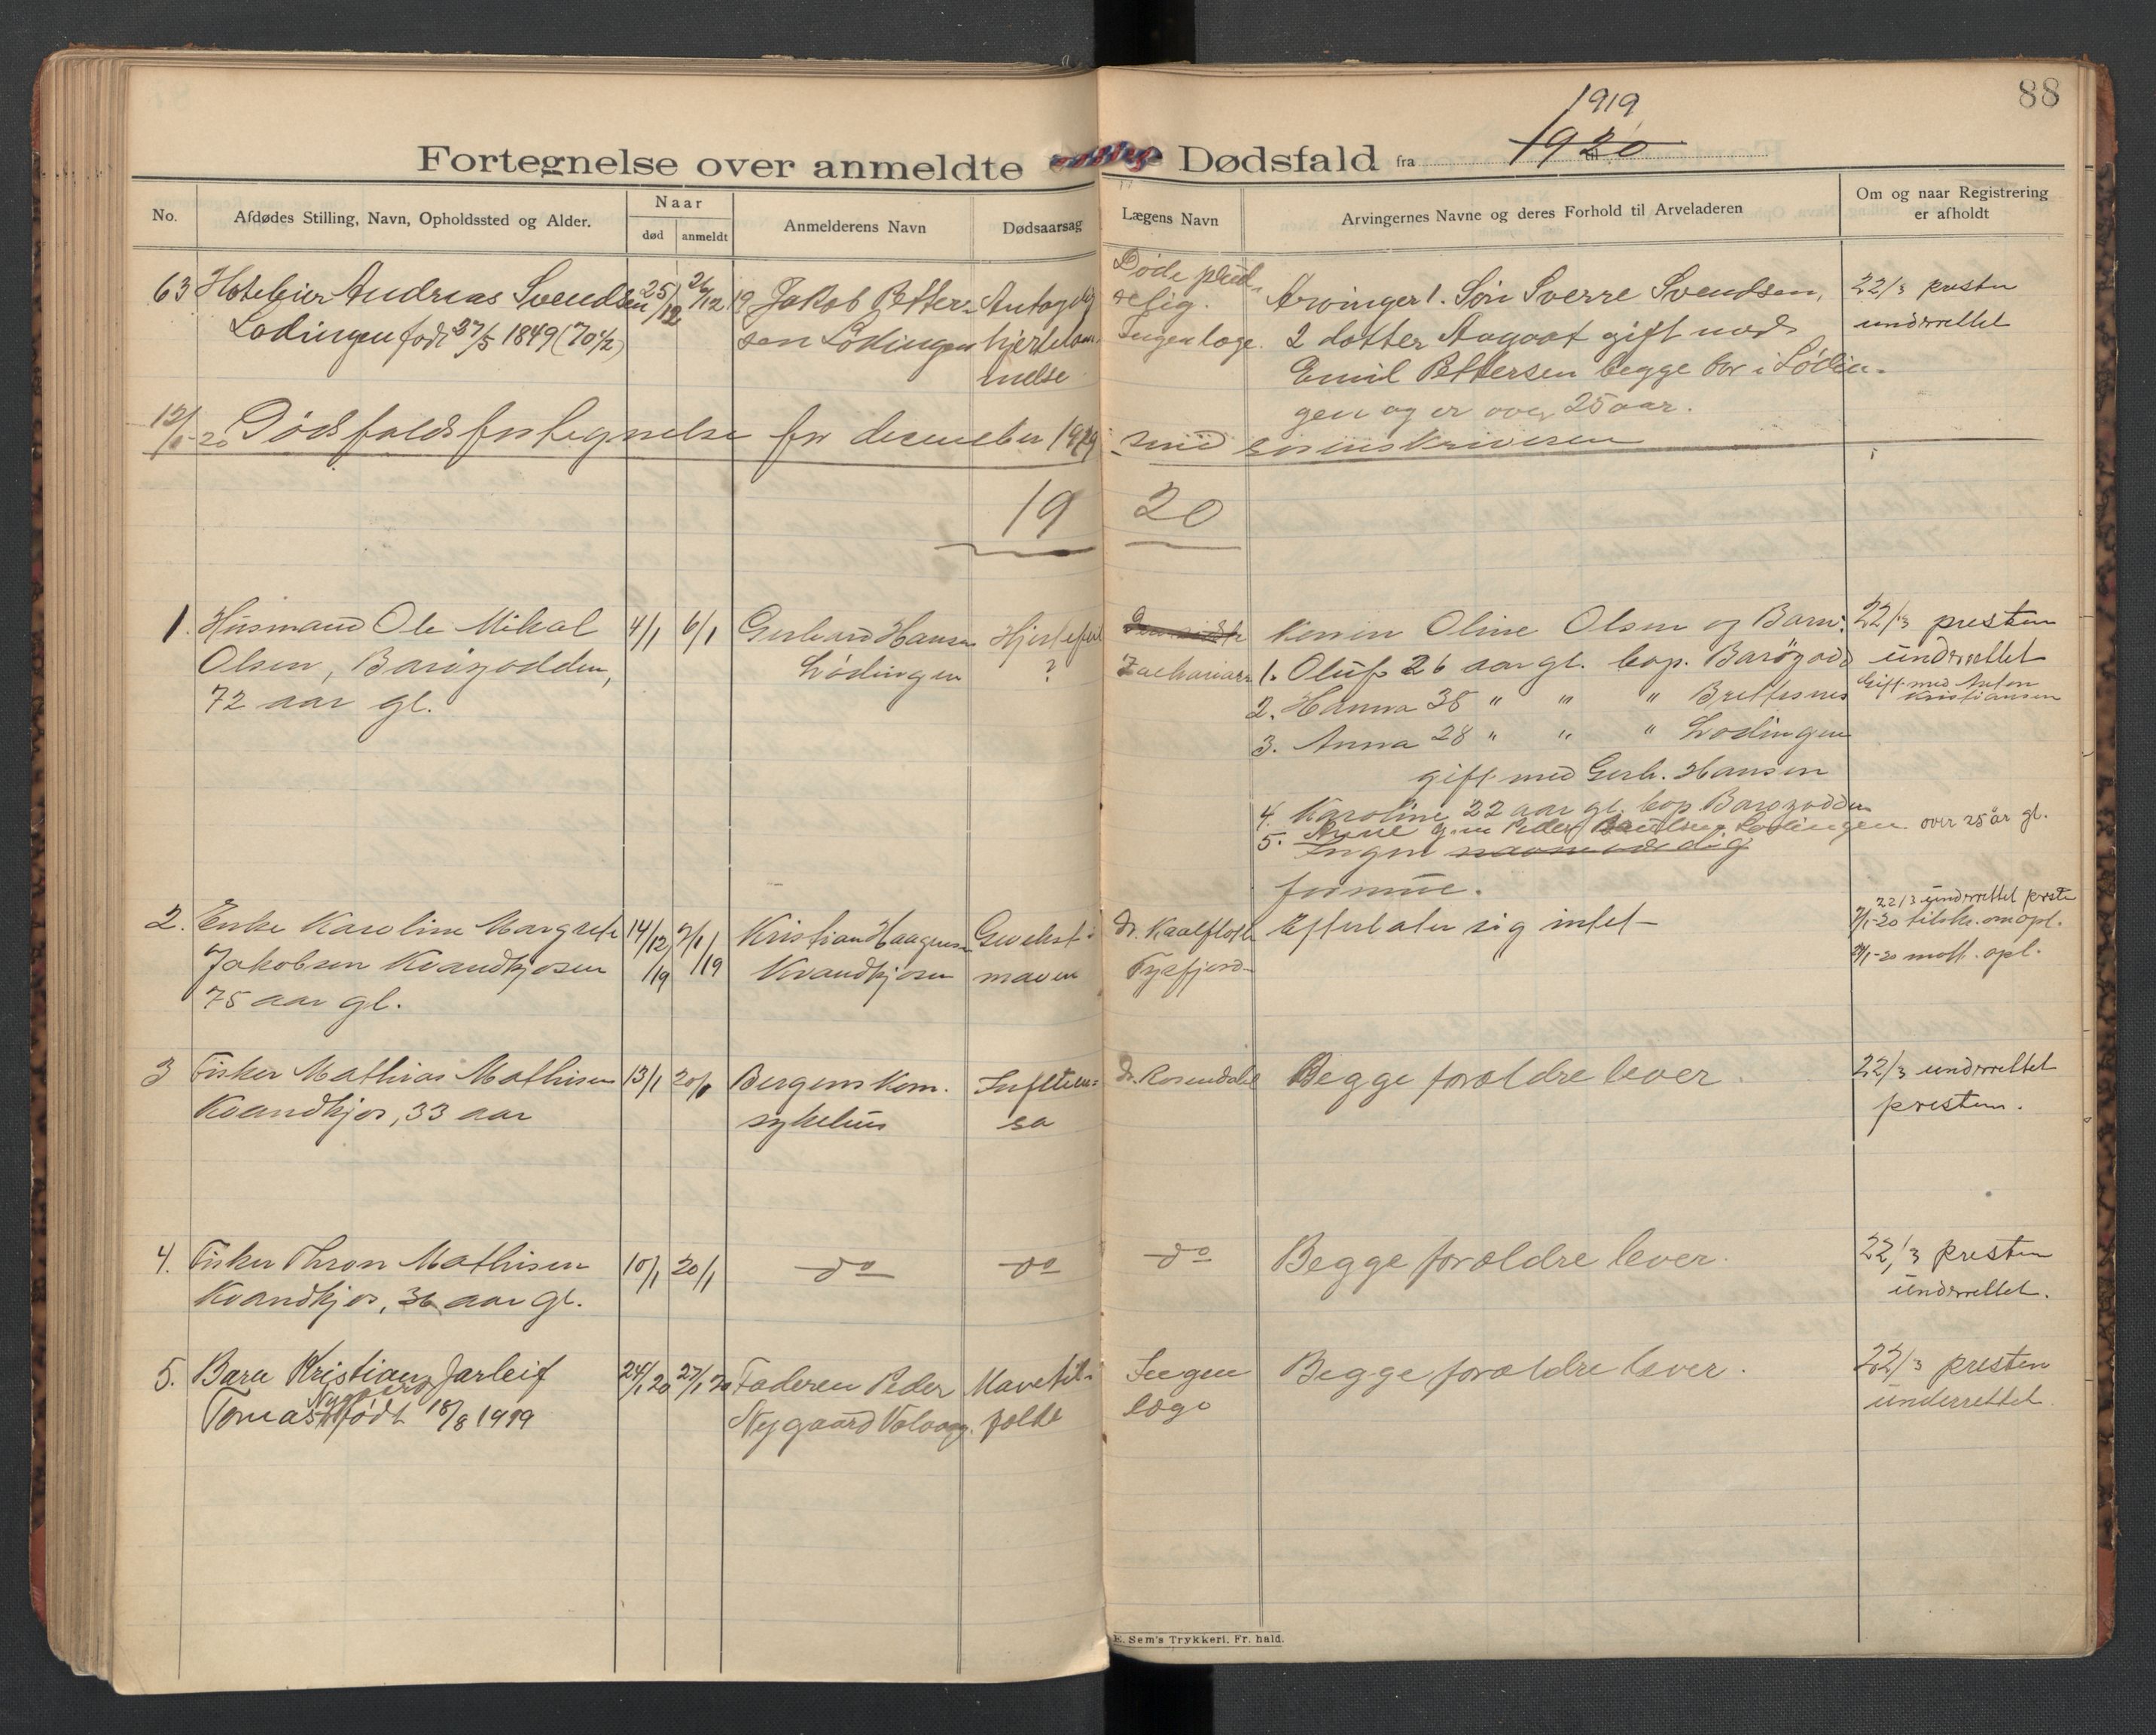 88
1919
1920
Fortegnelse over anmeldte Dødsfald fra
No.
Afdødes Stilling, Navn, Opholdssted og Alder.
Naar
død
anmeldt
Anmelderens Navn
Dødsaarsag
Lægens Navn
Arvingernes Navne og deres Forhold til Arveladeren
Om og naar Registrering
er afholdt
63 Hoteleier Andreas Svendsen
Lødingen født 27/5 1849 (70 1/2)
25/12
26/12 19
Jakob Petter-
sen Lødingen
Antagelig
hjertelam-
melse
Døde plud-
selig.
Ingen læge.
Arvinger 1. Søn Sverre Svendsen,
2 dotter Aagaat gift med
Emil Pettersen begge bor i Lødin-
gen og er over 25 aar.
22/3 presten
underrettet
12/1-20 Dødsfaldsfortegnelse for december 1919
sorenskriveren
19 20
1. Husmand Ole Mikal
Olsen, Barøyodden,
72 aar gl.
4/1
6/1
Gerhard Hansen
Lødingen
Hjertefeil
?
Zachariasen
Konen Oline Olsen og Barn:
1. Oluf 26 aar gl. bop. Barøyodd
2. Hanna 38 " " " Brettesnes
3. Anna 28 " " " Lødingen
gift med Gerh. Hansen
4. Karoline 22 aar gl. bop. Barøyodden
5. Anne g.m. Peder Paulsen Lødingen over 25 år gl.
Ingen
formue.
22/3 presten
underrettet
Gift med Anton
Kristiansen
2. Enke Karoline Margrete
Jakobsen Kvandkjosen
75 aar gl.
14/12
/19
7/1
/19
Kristian Haagensen
Kvandkjosen
Gevekst i
maven
Dr. Kaalfloth
Tysfjord
Efterlater sig intet
22/3 underrettet presten
7/1-20 tilskr. om opl.
/1-20 mott. opl.
3 Fisker Mathias Mathisen
Kvandkjos, 33 aar
13/1
20/1
Bergens Kom.
sykehus
Influen-
sa
Dr. Rosendahl
Begge forældre lever.
22/3 underrettet
presten.
4. Fisker Thron Mathisen
Kvandkjos, 36 aar gl.
10/1
20/1
do
do
do
Begge forældre lever.
22/3 presten
underrettet.
5. Barn Kristian Jarleif
Nygaard
Tomas født 18/8 1919
24/1 20
27/1 20
Faderen Peder
Nygaard Valvaag.
Mavetil-
fælde
Ingen
læge
Begge forældre lever.
22/3 presten
underrettet
E. Sem's Trykkeri, Fr. hald.